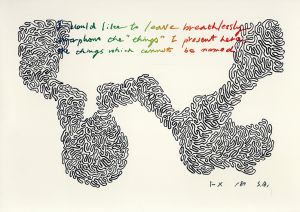 I would like to leave breathlessly
amorphous the "things" I present here
the things which cannot be named